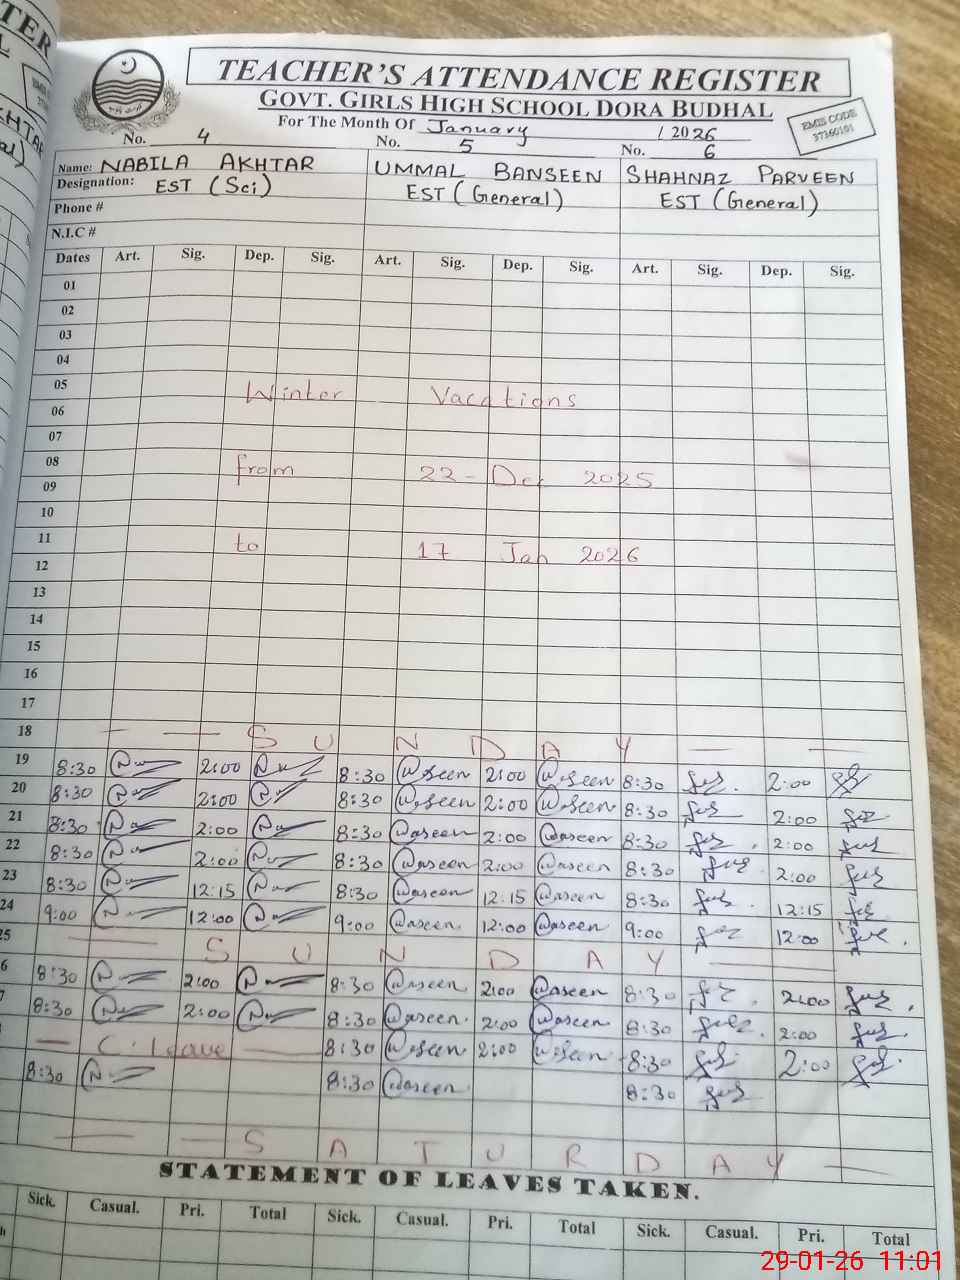 TEACHER'S ATTENDANCE REGISTER
GOVT. GIRLS HIGH SCHOOL DORA BUDHAL
For The Month Of January / 2026
EMIS CODE
37360101
No. 4 No. 5 No. 6
Name: NABILA AKHTAR UMMAL BANSEEN SHAHNAZ PARVEEN
Designation: EST (Sci) EST (General) EST (General)
Phone #
N.I.C #
Dates Art. Sig. Dep. Sig. Art. Sig. Dep. Sig. Art. Sig. Dep. Sig.
01
02
03
04
05 Winter Vacations
06
07
08 from 22-Dec 2025
09
10
11 to 17 Jan 2026
12
13
14
15
16
17
18 SUNDAY
19 8:30 2:00 8:30 2:00 8:30 2:00
20 8:30 2:00 8:30 2:00 8:30 2:00
21 8:30 2:00 8:30 2:00 8:30 2:00
22 8:30 2:00 8:30 2:00 8:30 2:00
23 8:30 12:15 8:30 12:15 8:30 12:15
24 9:00 12:00 9:00 12:00 9:00 12:00
25 SUNDAY
6 8:30 2:00 8:30 2:00 8:30 2:00
7 8:30 2:00 8:30 2:00 8:30 2:00
C. leave 8:30 2:00 8:30 2:00
8:30 8:30 8:30
SATURDAY
STATEMENT OF LEAVES TAKEN.
Sick. Casual. Pri. Total Sick. Casual. Pri. Total Sick. Casual. Pri. Total
29-01-26 11:01